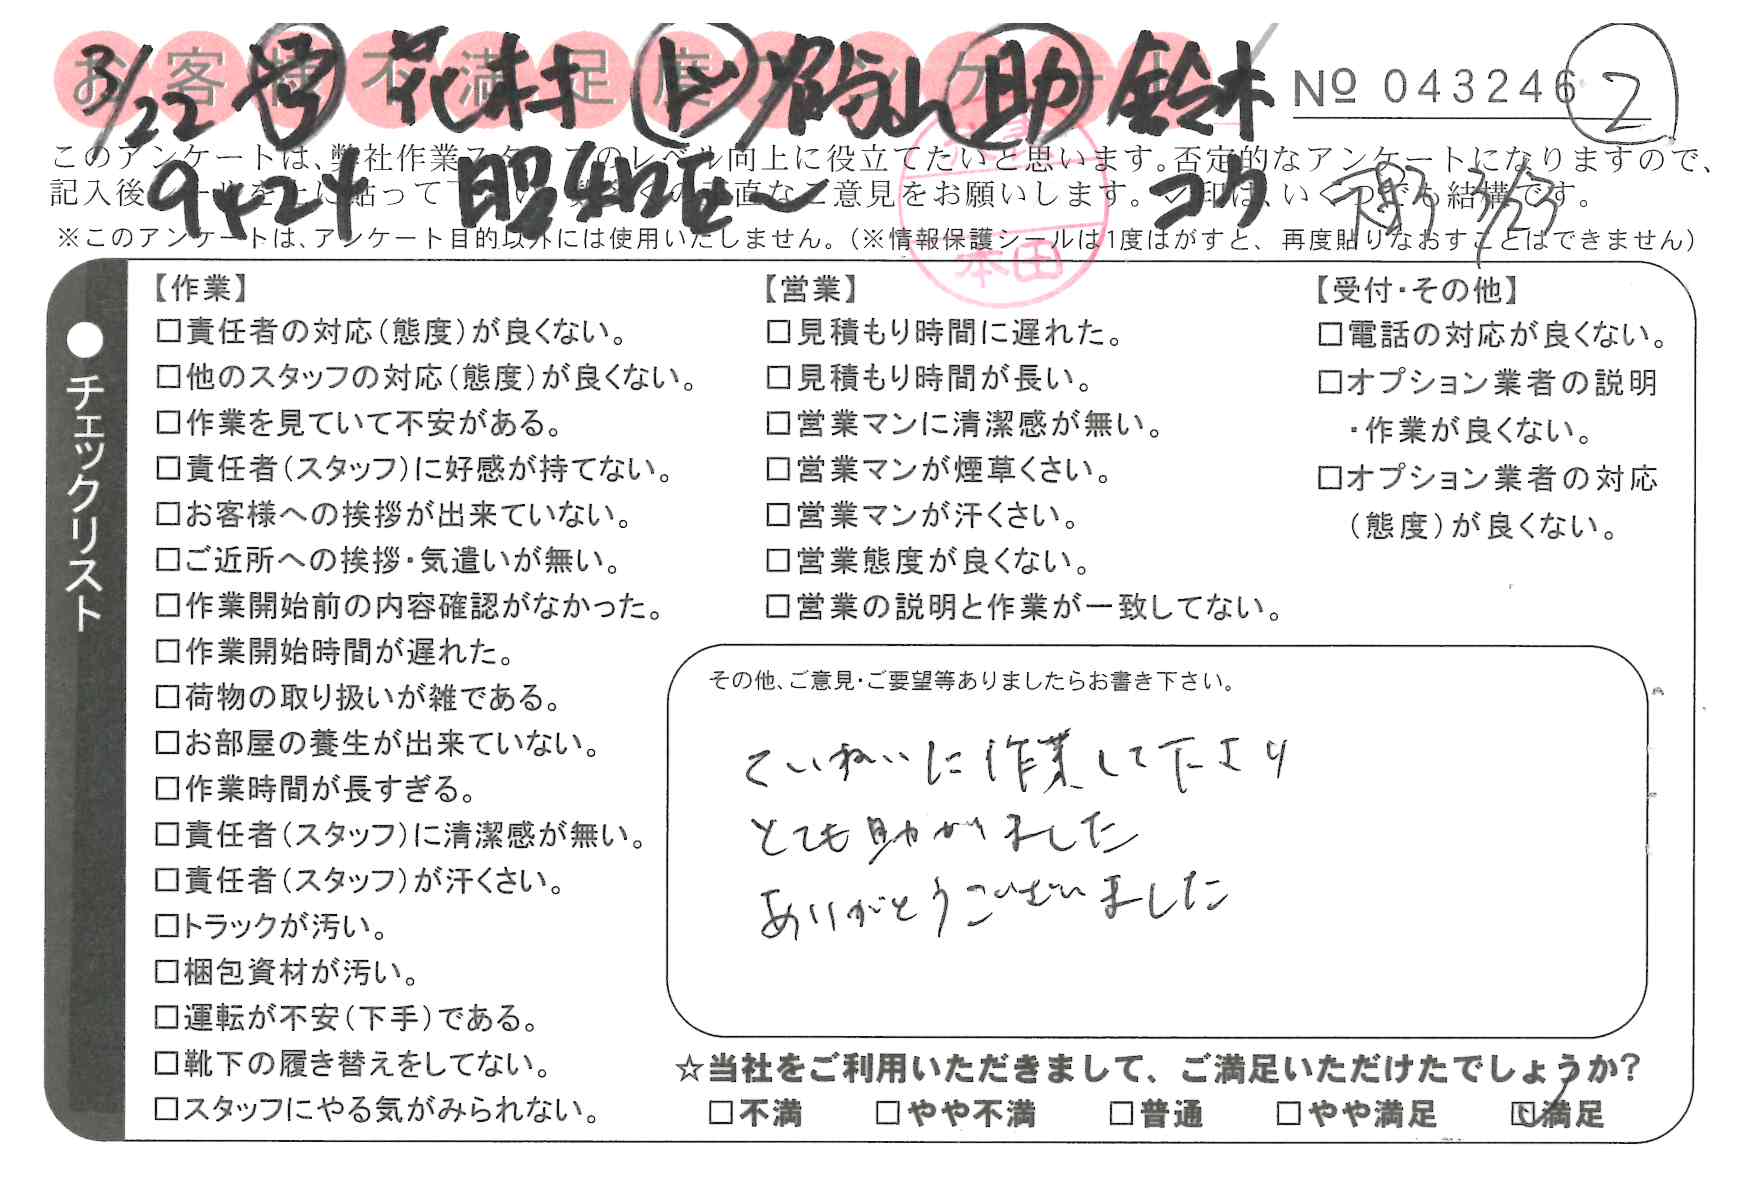 お客様不満足度アンケート
3/22 号 花村 ト 谷山 助 鈴木
№ 043246 ②
このアンケートは、弊社作業スタッフのレベル向上に役立てたいと思います。否定的なアンケートになりますので、
記入後シールを上に貼って下さい。数多くの正直なご意見をお願いします。✓印は、いくつでも結構です。
昭和区〜 コウ 3/23
※このアンケートは、アンケート目的以外には使用いたしません。(※情報保護シールは1度はがすと、再度貼りなおすことはできません)
本田
●チェックリスト
【作業】
□責任者の対応(態度)が良くない。
□他のスタッフの対応(態度)が良くない。
□作業を見ていて不安がある。
□責任者(スタッフ)に好感が持てない。
□お客様への挨拶が出来ていない。
□ご近所への挨拶・気遣いが無い。
□作業開始前の内容確認がなかった。
□作業開始時間が遅れた。
□荷物の取り扱いが雑である。
□お部屋の養生が出来ていない。
□作業時間が長すぎる。
□責任者(スタッフ)に清潔感が無い。
□責任者(スタッフ)が汗くさい。
□トラックが汚い。
□梱包資材が汚い。
□運転が不安(下手)である。
□靴下の履き替えをしてない。
□スタッフにやる気がみられない。
【営業】
□見積もり時間に遅れた。
□見積もり時間が長い。
□営業マンに清潔感が無い。
□営業マンが煙草くさい。
□営業マンが汗くさい。
□営業態度が良くない。
□営業の説明と作業が一致してない。
【受付・その他】
□電話の対応が良くない。
□オプション業者の説明
・作業が良くない。
□オプション業者の対応
(態度)が良くない。
その他、ご意見・ご要望等ありましたらお書き下さい。
ていねいに作業して下さり
とても助かりました
ありがとうございました
☆当社をご利用いただきまして、ご満足いただけたでしょうか?
□不満 □やや不満 □普通 □やや満足 ☑満足